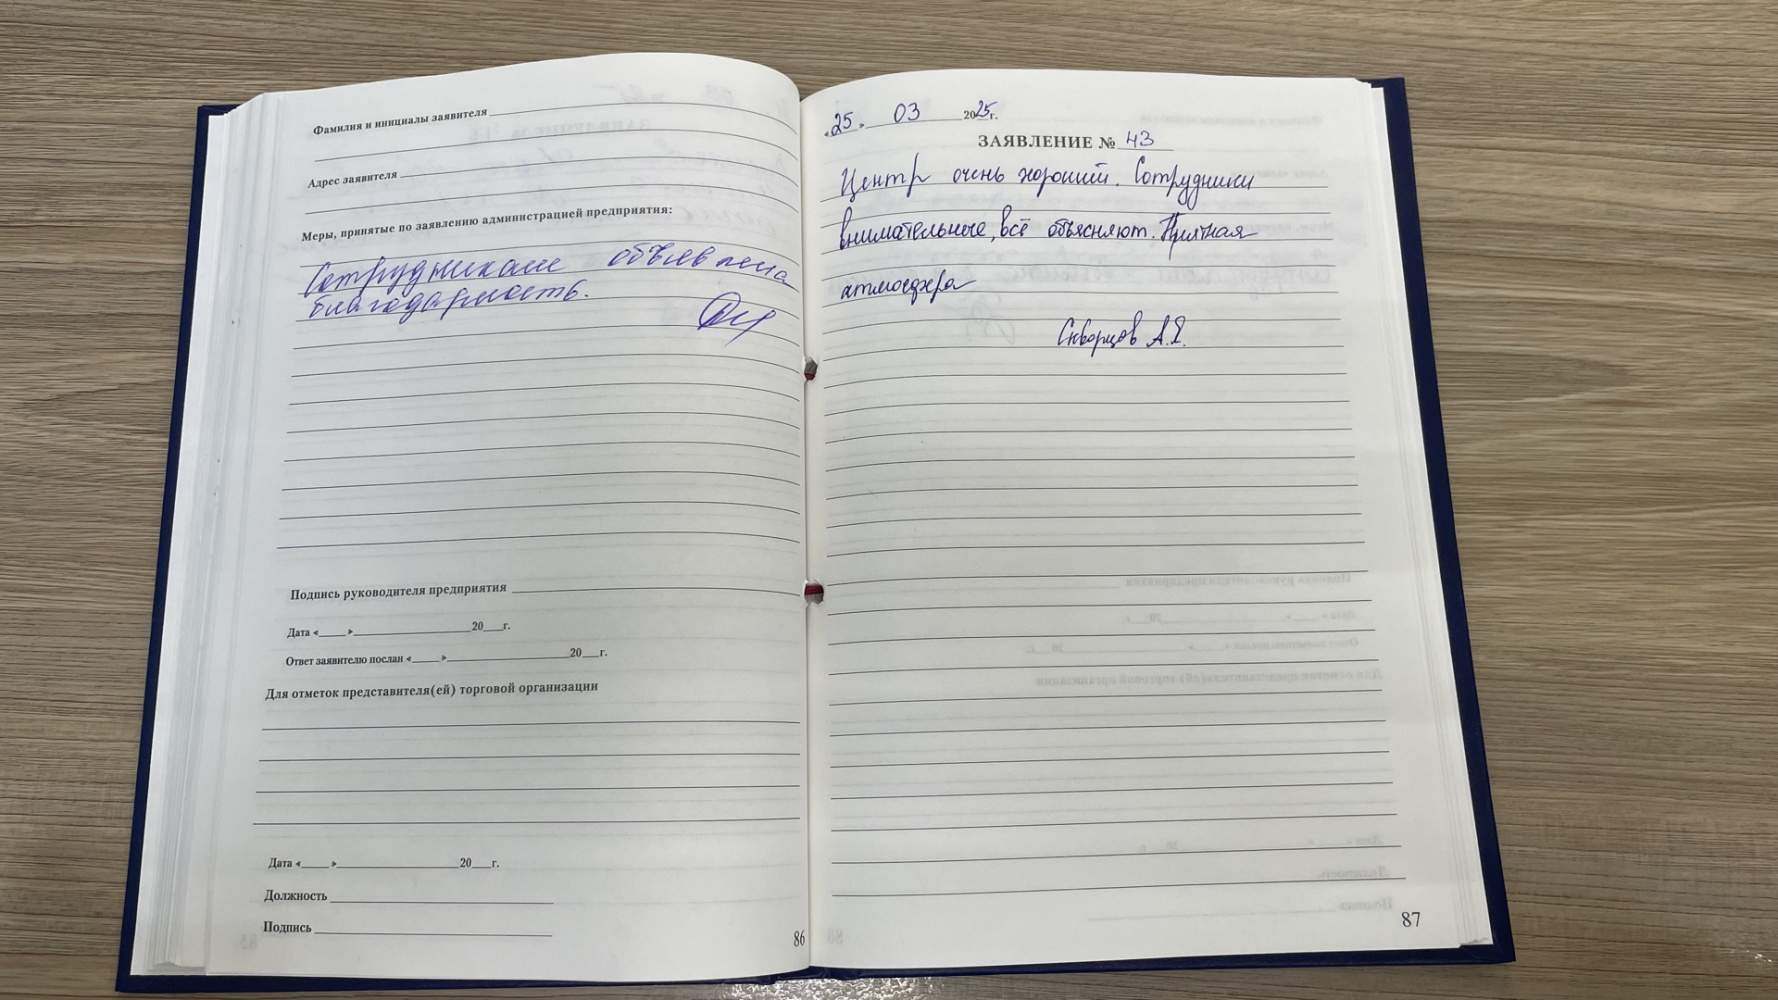 Фамилия и инициалы заявителя
Адрес заявителя
Меры, принятые по заявлению администрацией предприятия:
Сотрудникам объявлена
благодарность.
Подпись руководителя предприятия
Дата «____»____________________20___г.
Ответ заявителю послан «____»____________________20___г.
Для отметок представителя(ей) торговой организации
Дата «____»____________________20___г.
Должность
Подпись
86
«25» 03 2025г.
ЗАЯВЛЕНИЕ № 43
Центр очень хороший. Сотрудники
внимательные, всё объясняют. Приятная
атмосфера
Скворцов А.Я.
87